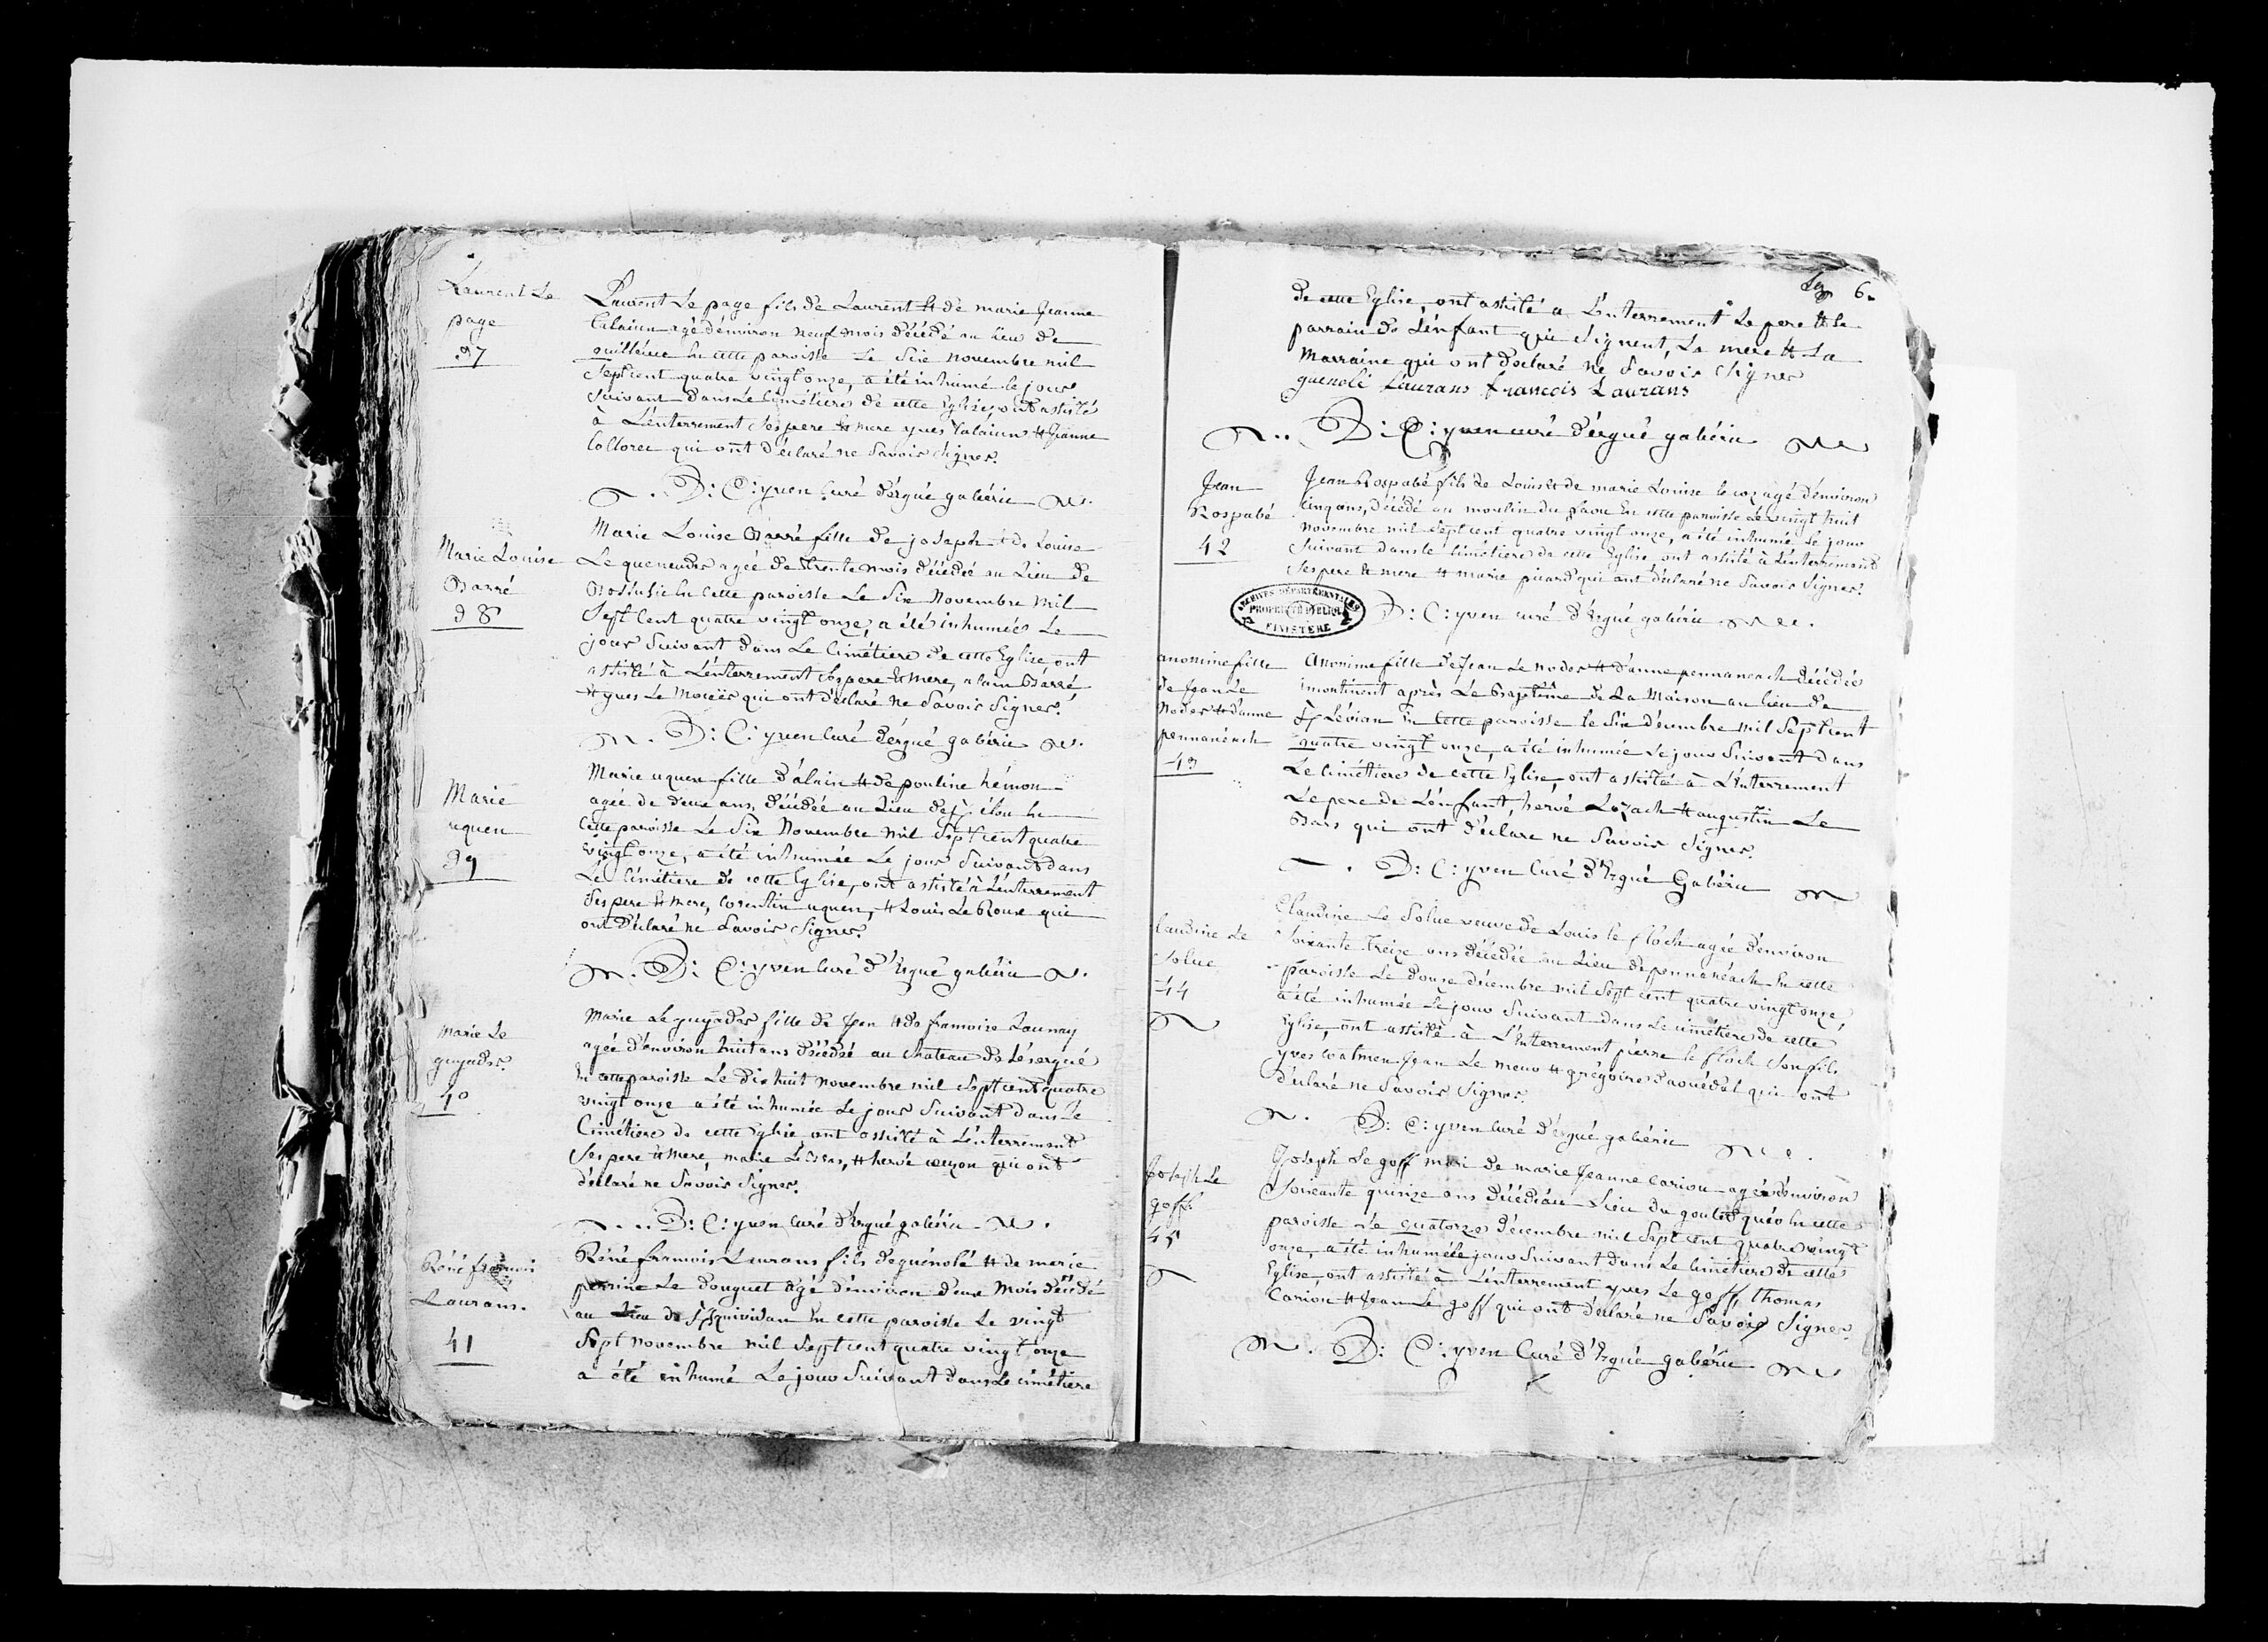 Laurent Le
page
37
Laurent Le page fils de Laurent et de marie Jeanne
Calaiun agé d'environ neuf mois décédé au lieu de
quilléuec En cette paroisse Le Six novembre mil
Sept cent quatre vingt onze, a été inhumé le jour
Suivant Dans Le Cimétiere de cette Eglise, ont assisté
à L'enterrement Ses pere et mere yves Calaiun et Jeanne
Collorec qui ont déclaré ne Savoir Signer.
D: C: yven Curé d'ergué gabéric
Marie Louise
Barré
38
Marie Louise Barré fille de joseph et de Louise
Le queneudec agée de trente mois décédée au Lieu de
En cette paroisse Le Six Novembre mil
Sept Cent quatre vingt onze, a été inhumée Le
jour Suivant dans Le Cimétiere de cette Eglise, ont
assisté à L'enterrement Ses pere et mere, alain Barré
et yves Le qui ont déclaré ne Savoir Signer.
D: C: yven Curé d'ergué gabéric
Marie
uguen
39
Marie uguen fille d'alain et de pauline hémon
agée de deux ans, décédée au Lieu de En
Cette paroisse Le Six Novembre mil Sept Cent quatre
vingt onze, a été inhumée Le jour Suivant dans
Le Cimétiere de cette Eglise, ont assisté à L'enterrement
Ses pere et mere, corentin uguen, et Louis Le Roux qui
ont déclaré ne Savoir Signer.
D: C: yven Curé d'Ergué gabéric
marie Le
guyader
40
Marie Le guyader fille de Jean et de francoise Launay
agée d'environ huit ans décédée au chateau de Lésergué
En cette paroisse Le dix huit novembre mil Sept cent quatre
vingt onze a été inhumée Le jour Suivant dans Le
Cimétiere de cette Eglise, ont assisté à L'enterrement
Ses pere et mere, marie Le Bras, et hervé qui ont
déclaré ne Savoir Signer.
D: C: yven Curé d'Ergué gabéric
Réné francois
Laurans.
41
Réné francois Laurans fils de guénolé et de marie
perrine Le Douguet agé d'environ deux mois décédé
au Lieu de Squividan En cette paroisse Le vingt
Sept novembre mil Sept cent quatre vingt onze
a été inhumé Le jour Suivant dans Le cimétiere
6.
de cette Eglise, ont assisté a L'enterrement Le pere et le
parrain de L'enfant qui Signent, La mere et La
Marraine qui ont déclaré ne Savoir Signer
guenolé Laurans francois Laurans
D: C: yven curé d'ergué gabéric
Jean
Rospabé
42
Jean Rospabé fils de Louis et de marie Louise Le coz agé d'environ
Cinq ans, décédé au moulin du faou En cette paroisse Le vingt huit
Novembre mil Sept cent quatre vingt onze, a été inhumé Le jour
Suivant dans le Cimétiere de cette Eglise, ont assisté à L'enterrement
Ses pere et mere et marie picard qui ont déclaré ne Savoir Signer.
ARCHIVES DÉPARTEMENTALES
PROPRIÉTÉ PUBLIQUE
FINISTÈRE
D: C: yven curé d'Ergué gabéric
anonime fille
de Jean Le
Noder et d'anne
pennanéach
43
Anonime fille de Jean Le noder et d'anne pennaneach décédée
incontinent après Le Baptême de La Maison au lieu de
En cette paroisse le Six décembre mil Sept Cent
quatre vingt onze, a été inhumée Le jour Suivant dans
Le Cimétiere de cette Eglise, ont assisté à L'enterrement
Le pere de L'enfant, hervé Lozach et augustin Le
Bars qui ont déclaré ne Savoir Signer.
D: C: yven Curé d'Ergué Gabéric
Claudine Le
Solue
44
Claudine Le Solue veuve de Louis le floch agée d'environ
Soixante treize ans décédée au Lieu de pennanéach En cette
paroisse Le douze décembre mil Sept cent quatre vingt onze,
a été inhumée Le jour Suivant dans Le cimétiere de cette
Eglise, ont assisté à L'Enterrement pierre le floch Son fils
yves Coatmen Jean Le meur et grégoire qui ont
déclaré ne Savoir Signer.
D: C: yven Curé d'ergué gabéric
Joseph Le
goff
45
Joseph Le goff mari de marie Jeanne Cariou agé d'environ
Soixante quinze ans décédé au Lieu du En cette
paroisse Le quatorze décembre mil Sept Cent quatre vingt
onze, a été inhumé le jour Suivant dans Le Cimétiere de cette
Eglise, ont assisté à L'enterrement yves Le goff, thomas
Cariou et Jean Le goff qui ont déclaré ne Savoir Signer.
D: C: yven Curé d'Ergué gabéric